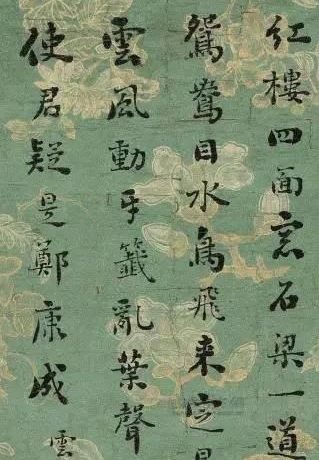 红樓四面窓石梁一道
鴛鴦自水鳥飛来定
雲風動牙籤亂葉聲
使君疑是鄭康成 雲